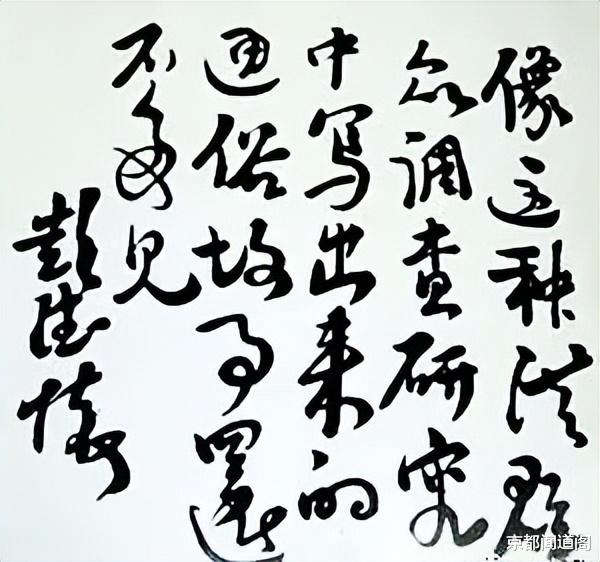 像这种從群
众调查研究
中写出来的
通俗故事還
不多见
彭德懷
京都闻道阁